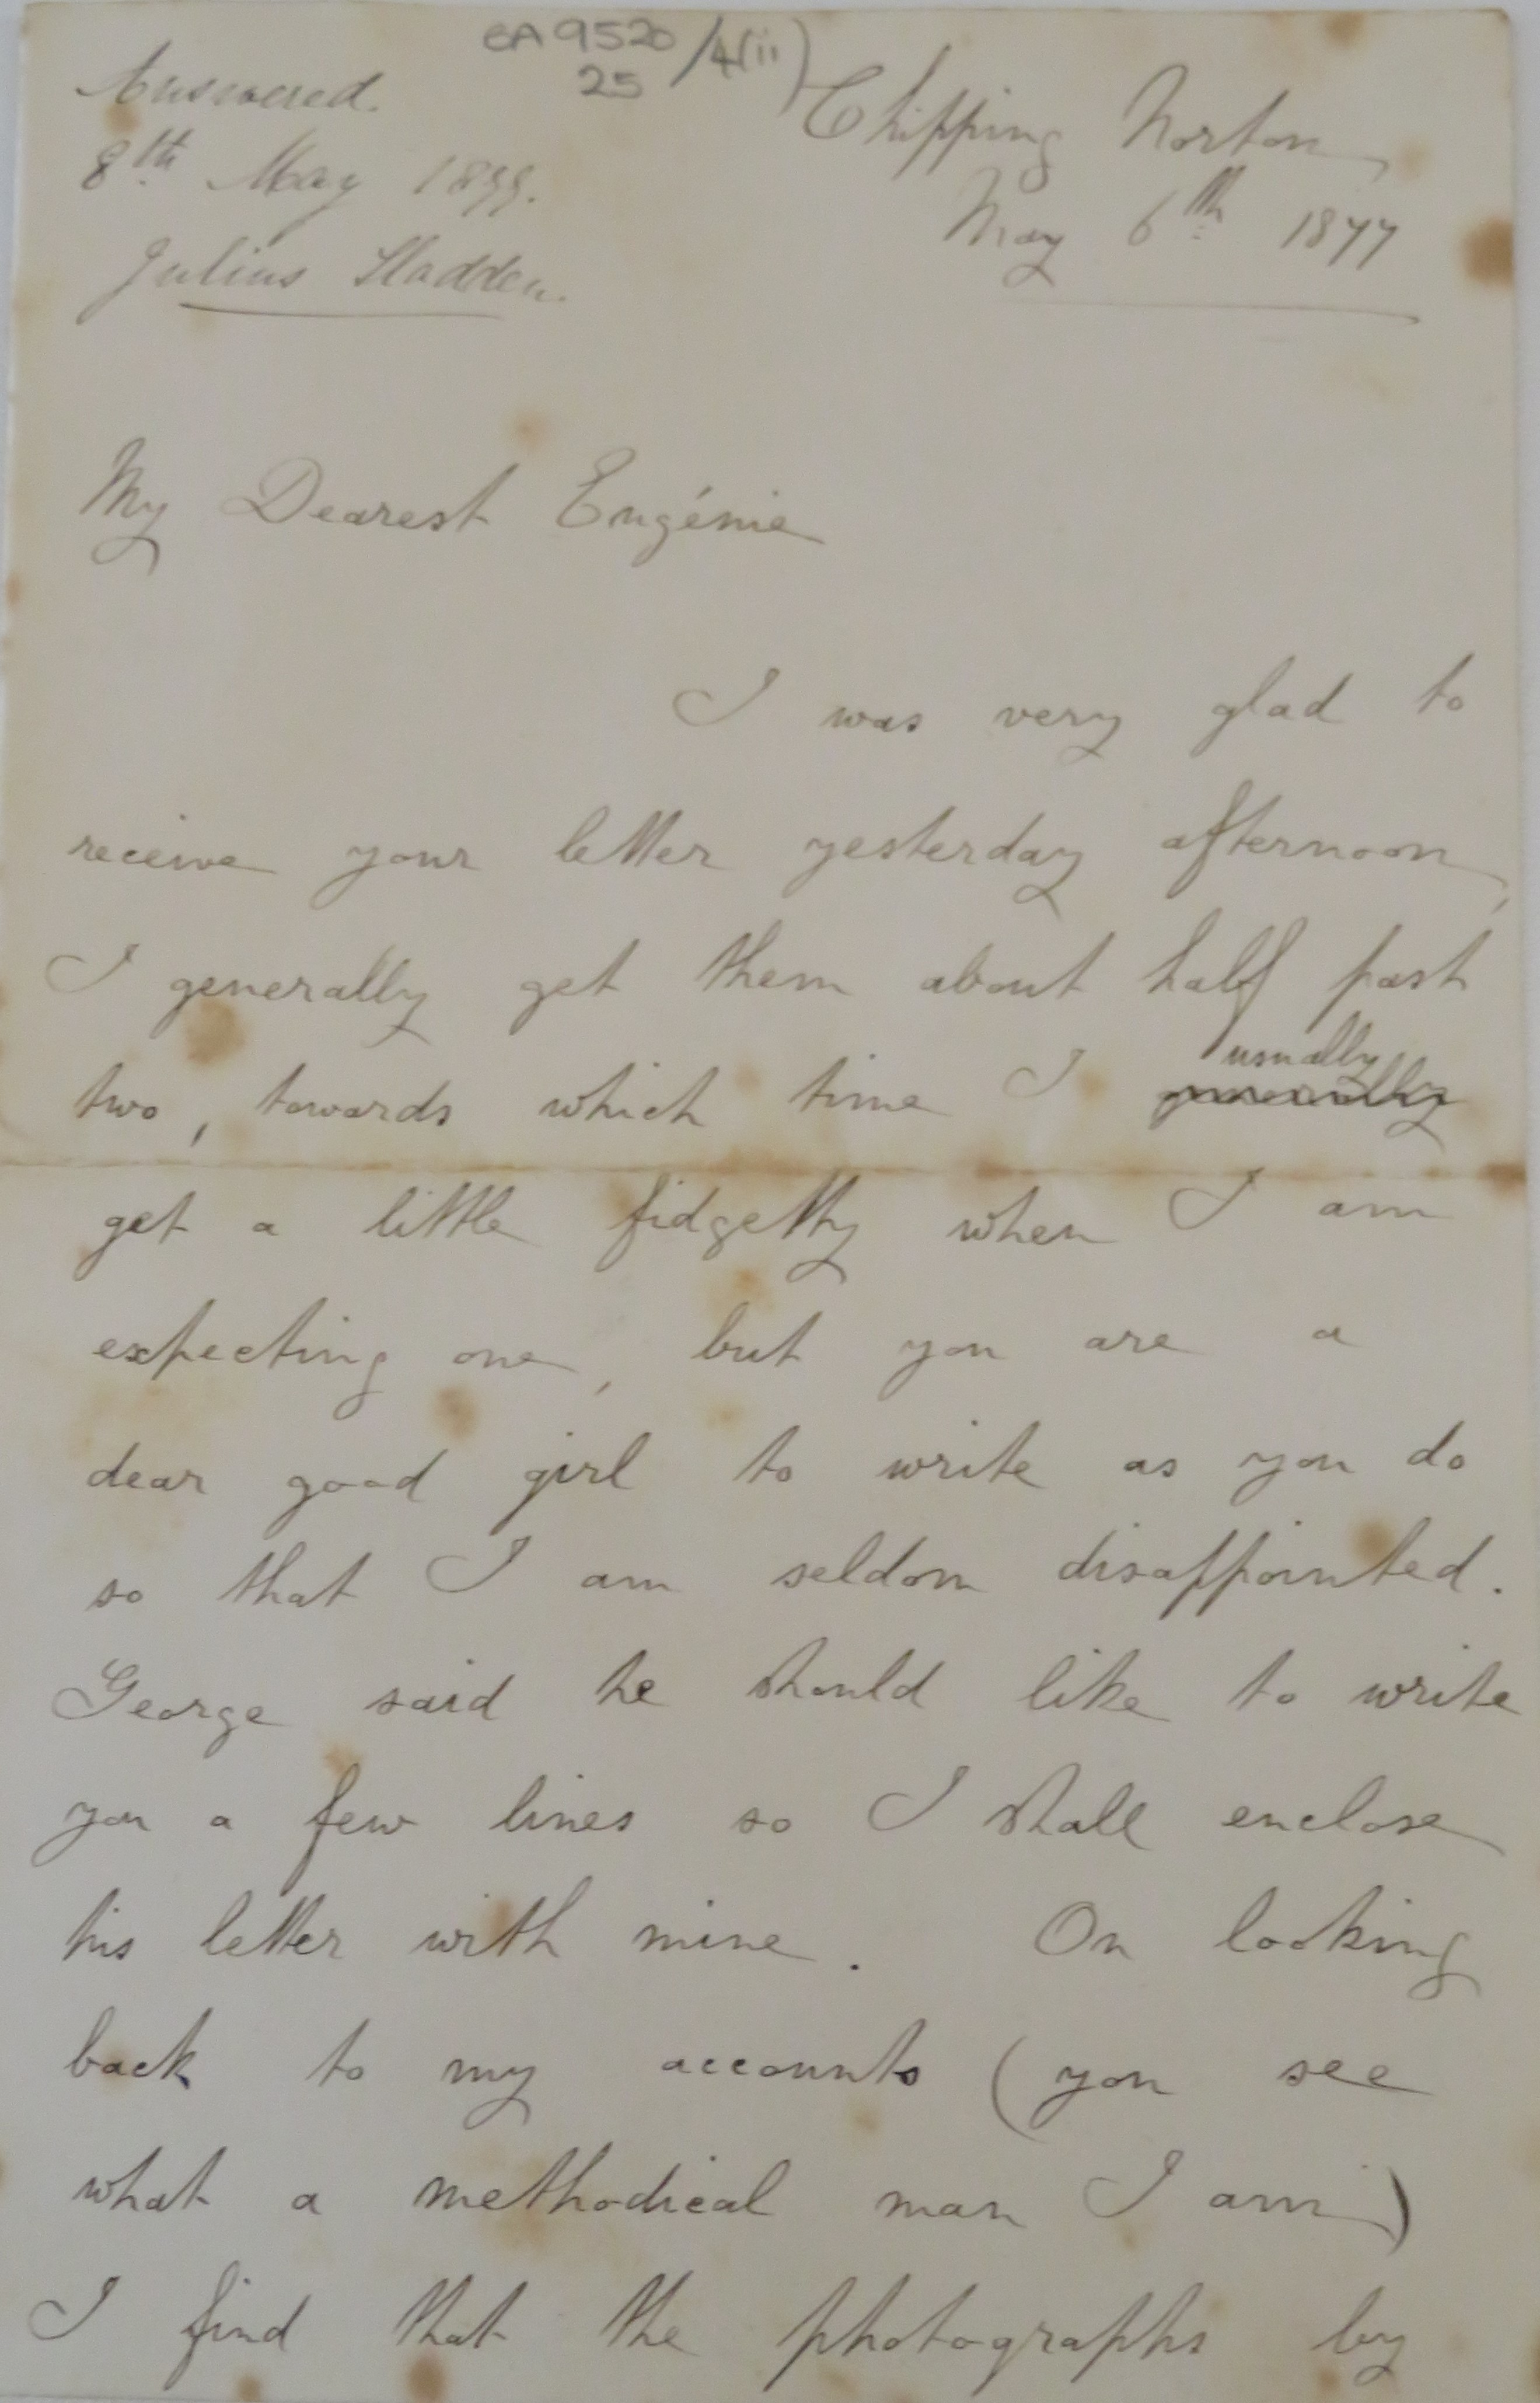 EA 9520/4(ii)
25
Answered.
8th May 1877.
Julius Sladden.
Chipping Norton
May 6th 1877
My Dearest Eugénie
I was very glad to
receive your letter yesterday afternoon,
I generally get them about half past
usually
two, towards which time I generally
get a little fidgetty when I am
expecting one, but you are a
dear good girl to write as you do
so that I am seldom disappointed.
George said he should like to write
you a few lines so I shall enclose
his letter with mine. On looking
back to my accounts (you see
what a methodical man I am)
I find that the photographs by